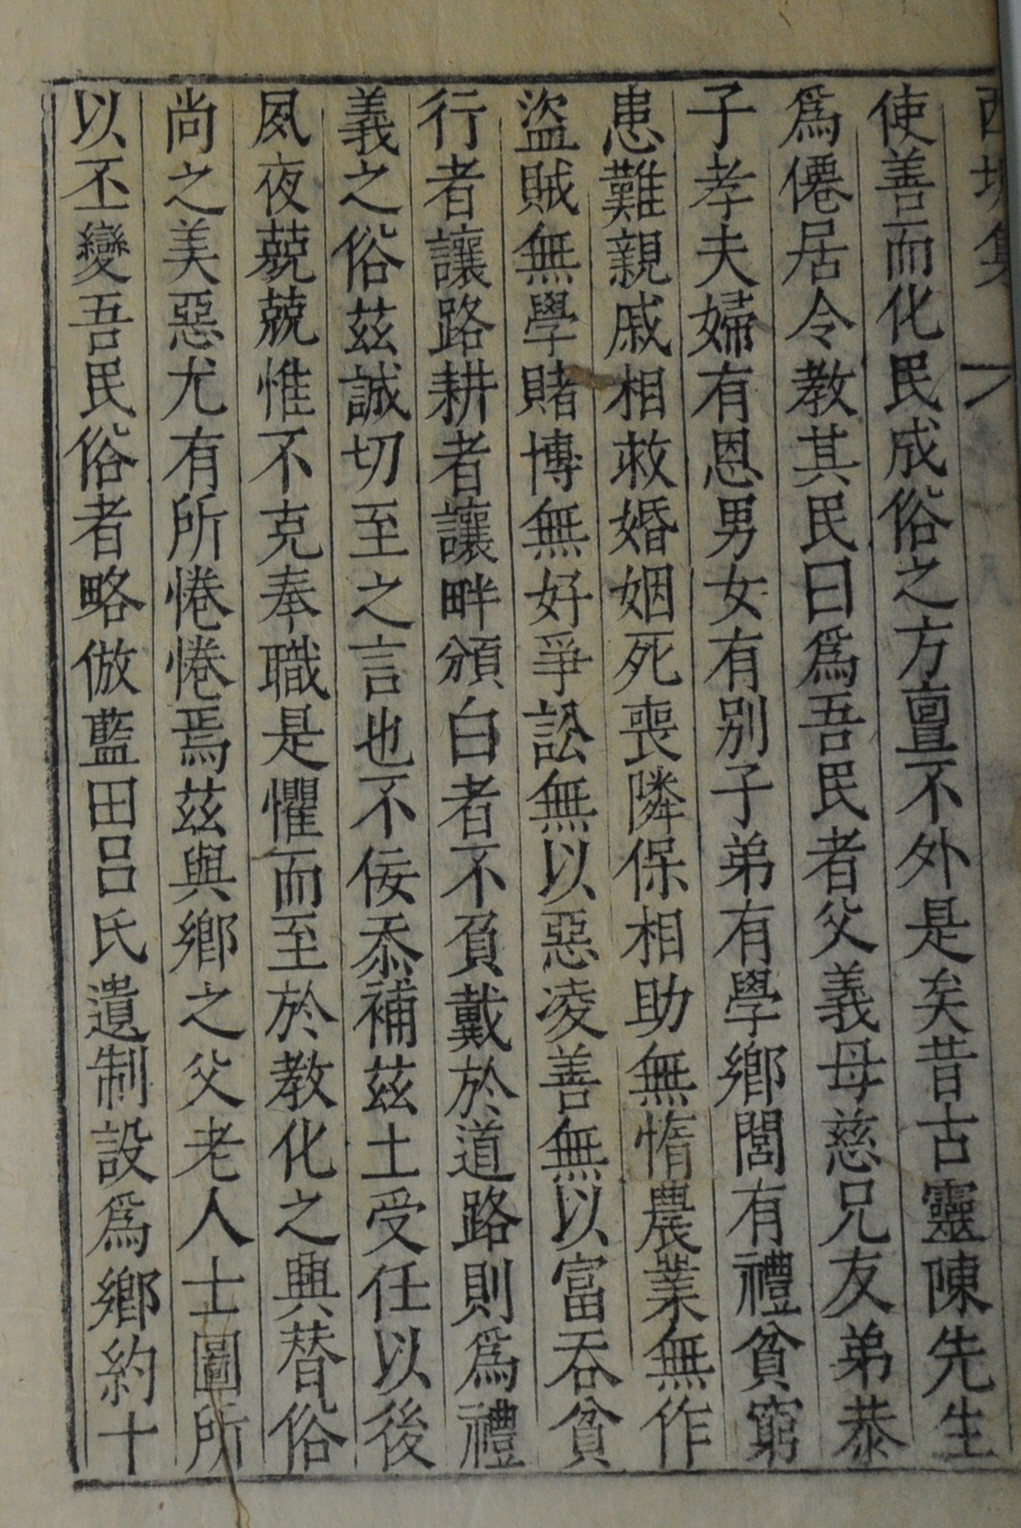 使善而化民成俗之方亶不外是矣昔古靈陳先生
爲僊居令教其民曰爲吾民者父義母慈兄友弟恭
子孝夫婦有恩男女有别子弟有學鄕閭有禮貧窮
患難親戚相救婚姻死喪隣保相助無惰農業無作
盜賊無學賭博無好爭訟無以惡凌善無以富吞貧
行者讓路耕者讓畔頒白者不負戴於道路則爲禮
義之俗茲誠切至之言也不佞忝補茲土受任以後
夙夜兢兢惟不克奉職是懼而至於教化之興替俗
尚之美惡尤有所惓惓焉茲與鄕之父老人士圖所
以丕變吾民俗者略倣藍田呂氏遺制設爲鄕約十